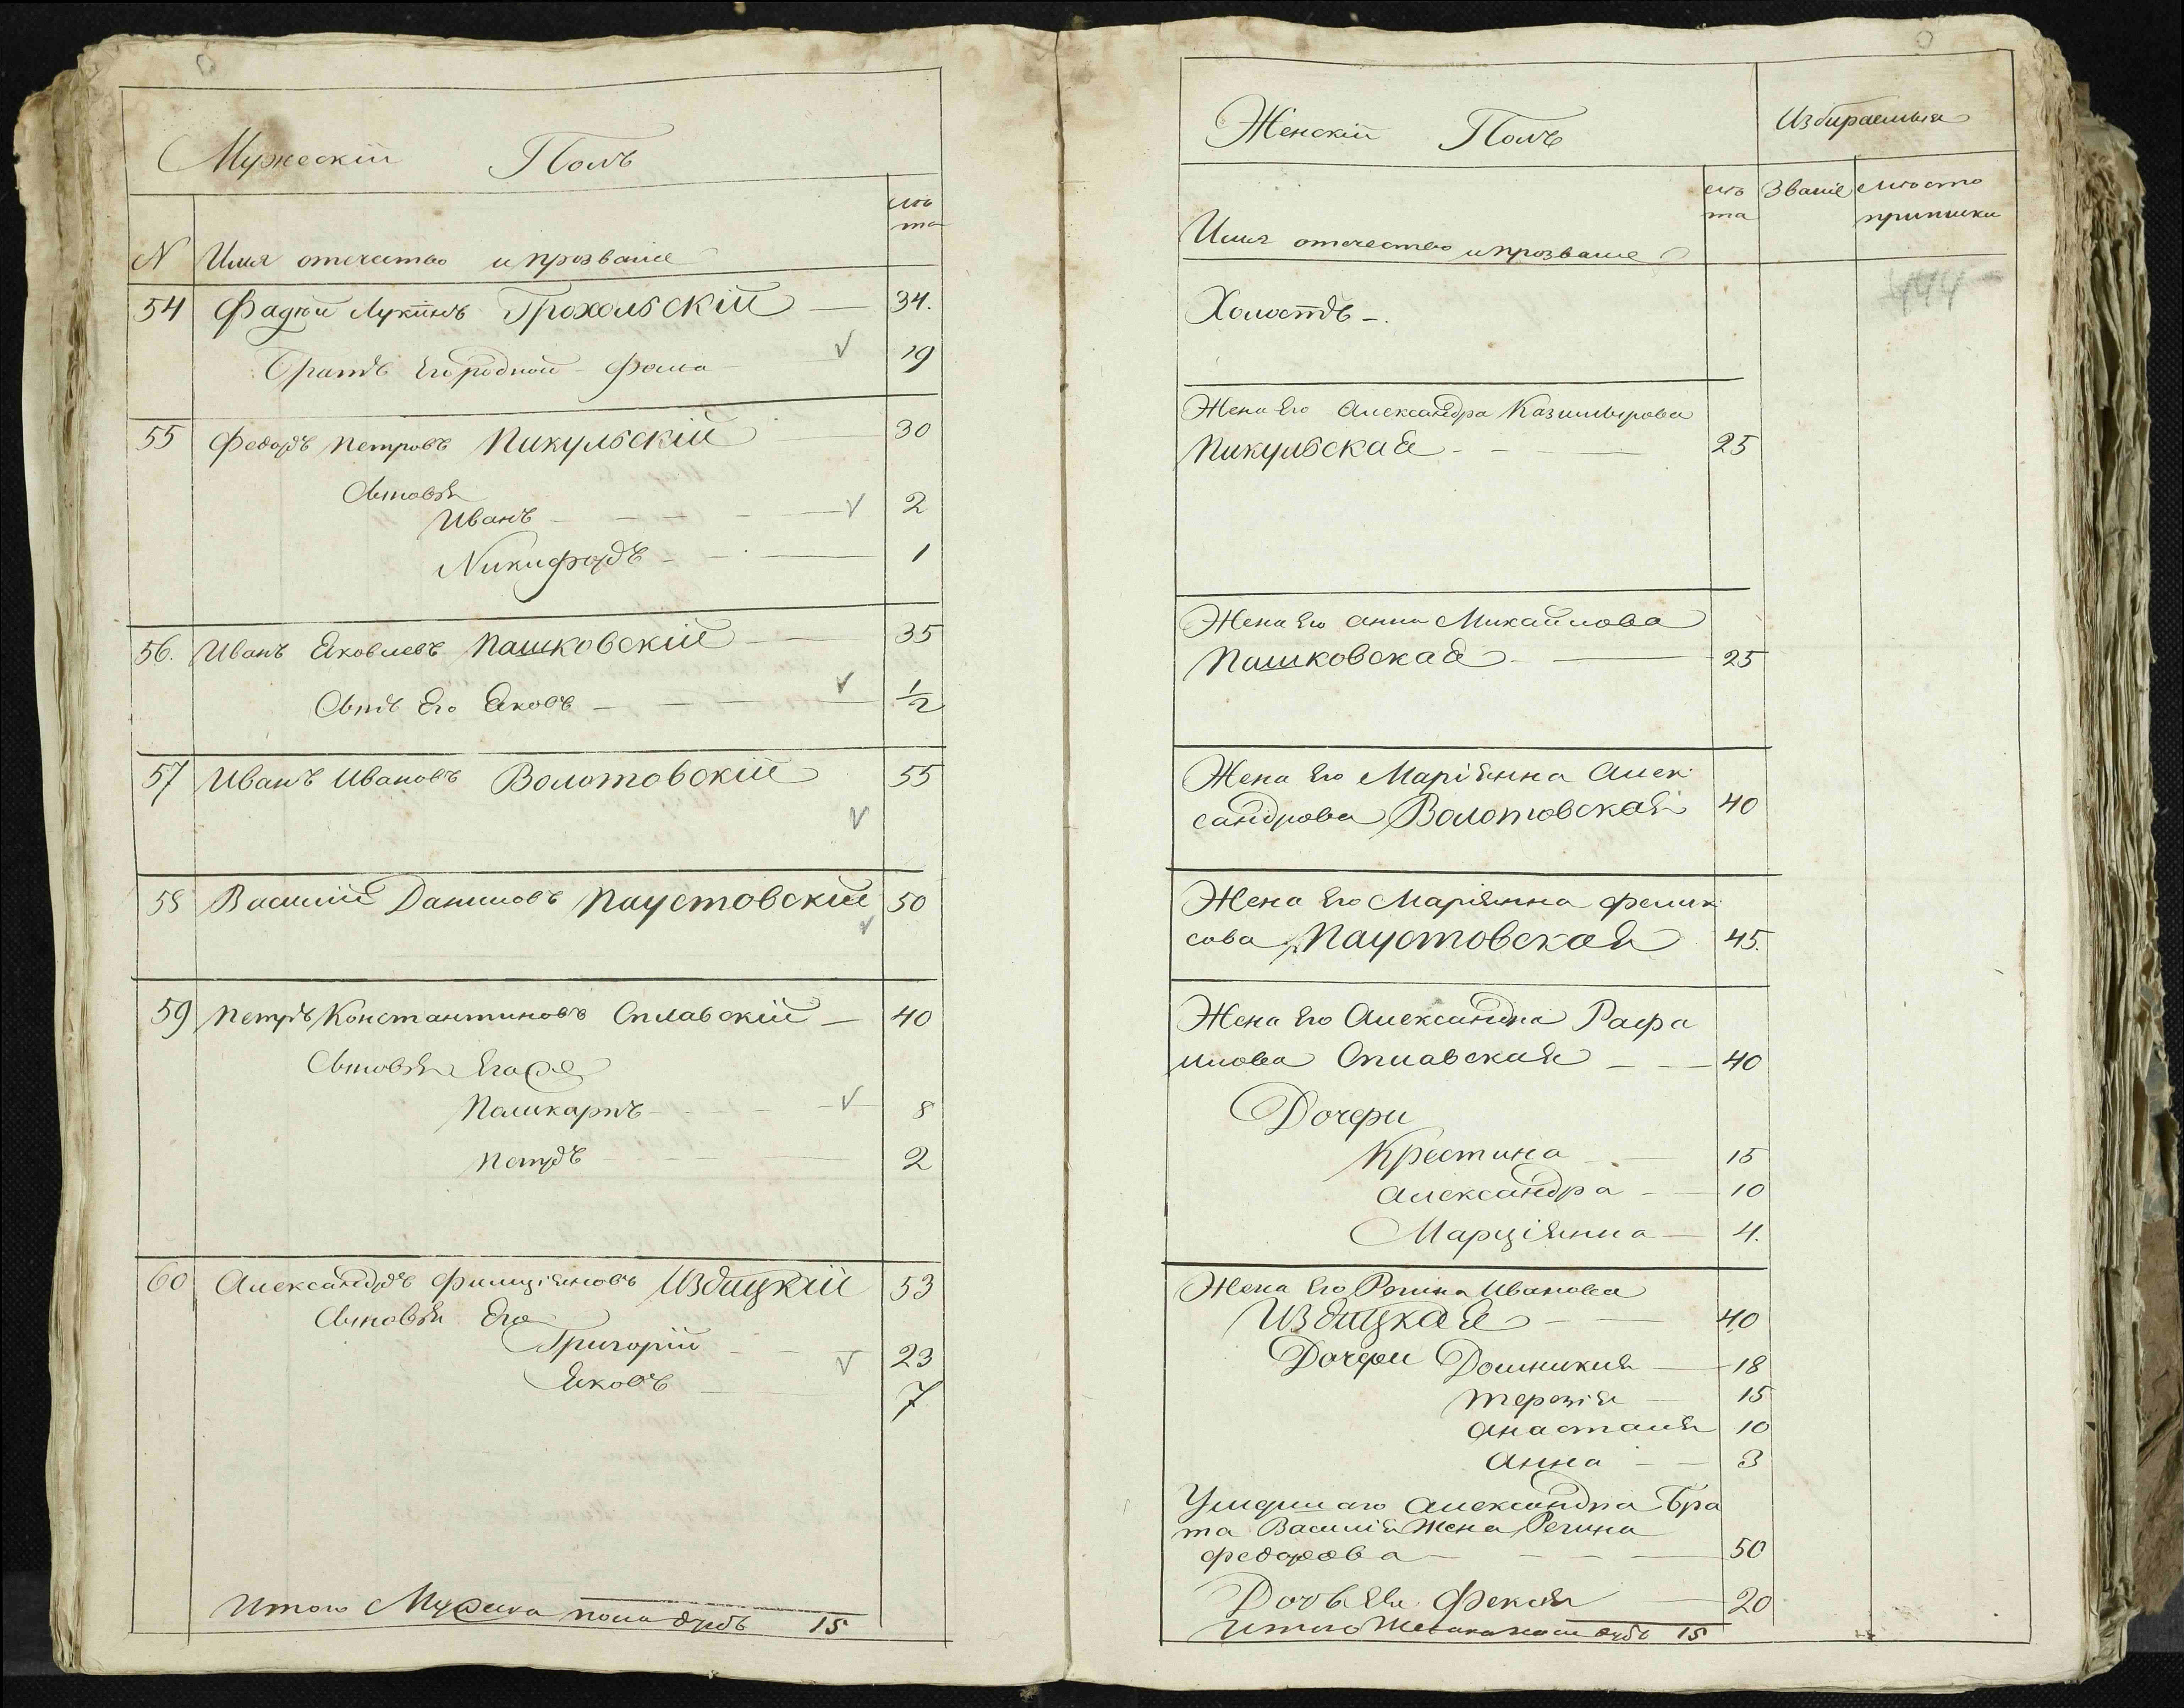 Мужескій Полъ
лѣ
та
N Имя отечество и прозваніе
54 Фадѣй Лукинъ Грохольскій — 34.
Братъ Его родной — Фома — √ 19
55 Федоръ Петровъ Пикульскій 30
Сыновья
Иванъ — √ 2
Никифоръ — 1
56. Иванъ Яковлевъ Пашковскій — 35
Сынъ Его Яковъ — √ 1/2
57 Иванъ Ивановъ Волотовскій 55
√
58 Василий Даниловъ Паустовскій 50
√
59 Петръ Константиновъ Сплавскій — 40
Сыновья Его
Пашкарпъ — √ 8
Петръ — 2
60 Александръ Фелиціяновъ Издицкій 53
Сыновья Его
Григорій — √ 23
Яковъ — 7
Итого Мужска пола душъ 15
Женскій Полъ Избираемыя
лѣ Званіе Мѣсто
та приписки
Имя отечество и прозваніе
Холостъ —. 444
Жена Его Александра Казимырова
Пикульская — 25
Жена Его Анна Михайлова
Пашковская — 25
Жена Его Маріянна Алек
сандрова Волотовская 40
Жена Его Маріянна Фелик
сова Паустовская 45.
Жена Его Александра Рафа
илова Сплавская — 40
Дочери
Крестина — 15
Александра — 10
Марціянна — 4.
Жена Его Регина Иванова
Издицкая — 40
Дочери Доминикия — 18
Терозія — 15
Анастасия 10
Анна — 3
Умершаго Александра Бра
та Василія Жена Регина
Федорова — 50
Дочь Ея Фекла — 20
Итого Женска пола душъ 15